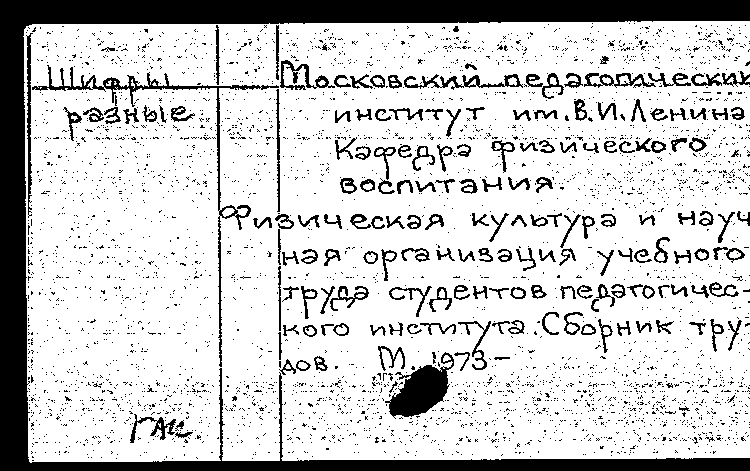 Шифры
разные
Московский педагогический
институт им.В.И.Ленина
Кафедра физического
воспитания.
Физическая культура и науч-
ная организация учебного
труда студентов педагогичес-
кого института. Сборник тру-
дов. М. 1973-